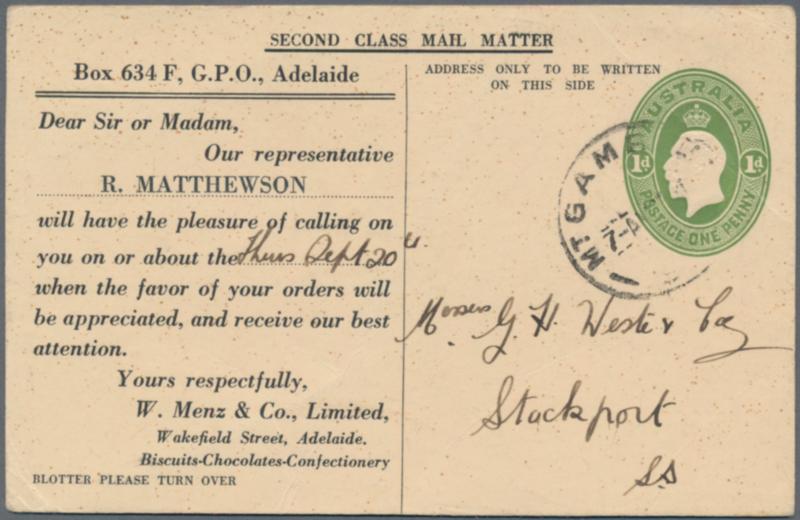 SECOND CLASS MAIL MATTER
Box 634 F, G.P.O., Adelaide
Dear Sir or Madam,
Our representative
R. MATTHEWSON
will have the pleasure of calling on
you on or about the Thurs Sept 20th
when the favor of your orders will
be appreciated, and receive our best
attention.
Yours respectfully,
W. Menz & Co., Limited,
Wakefield Street, Adelaide.
Biscuits-Chocolates-Confectionery
BLOTTER PLEASE TURN OVER
ADDRESS ONLY TO BE WRITTEN
ON THIS SIDE
AUSTRALIA
1d 1d
POSTAGE ONE PENNY
MT GAM
Messrs G. H. West & Coy
Stockport